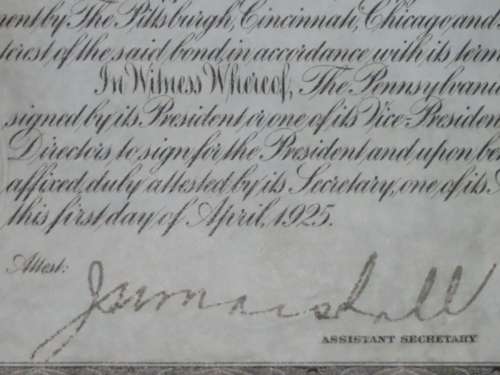 ment by The Pittsburgh, Cincinnati, Chicago and
terest of the said bond, in accordance with its term
In Witness Whereof, The Pennsylvania
signed by its President or one of its Vice-Presiden
Directors to sign for the President and upon bo
affixed, duly attested by its Secretary, one of its
this first day of April, 1925.
Attest:
J W Marshall
ASSISTANT SECRETARY